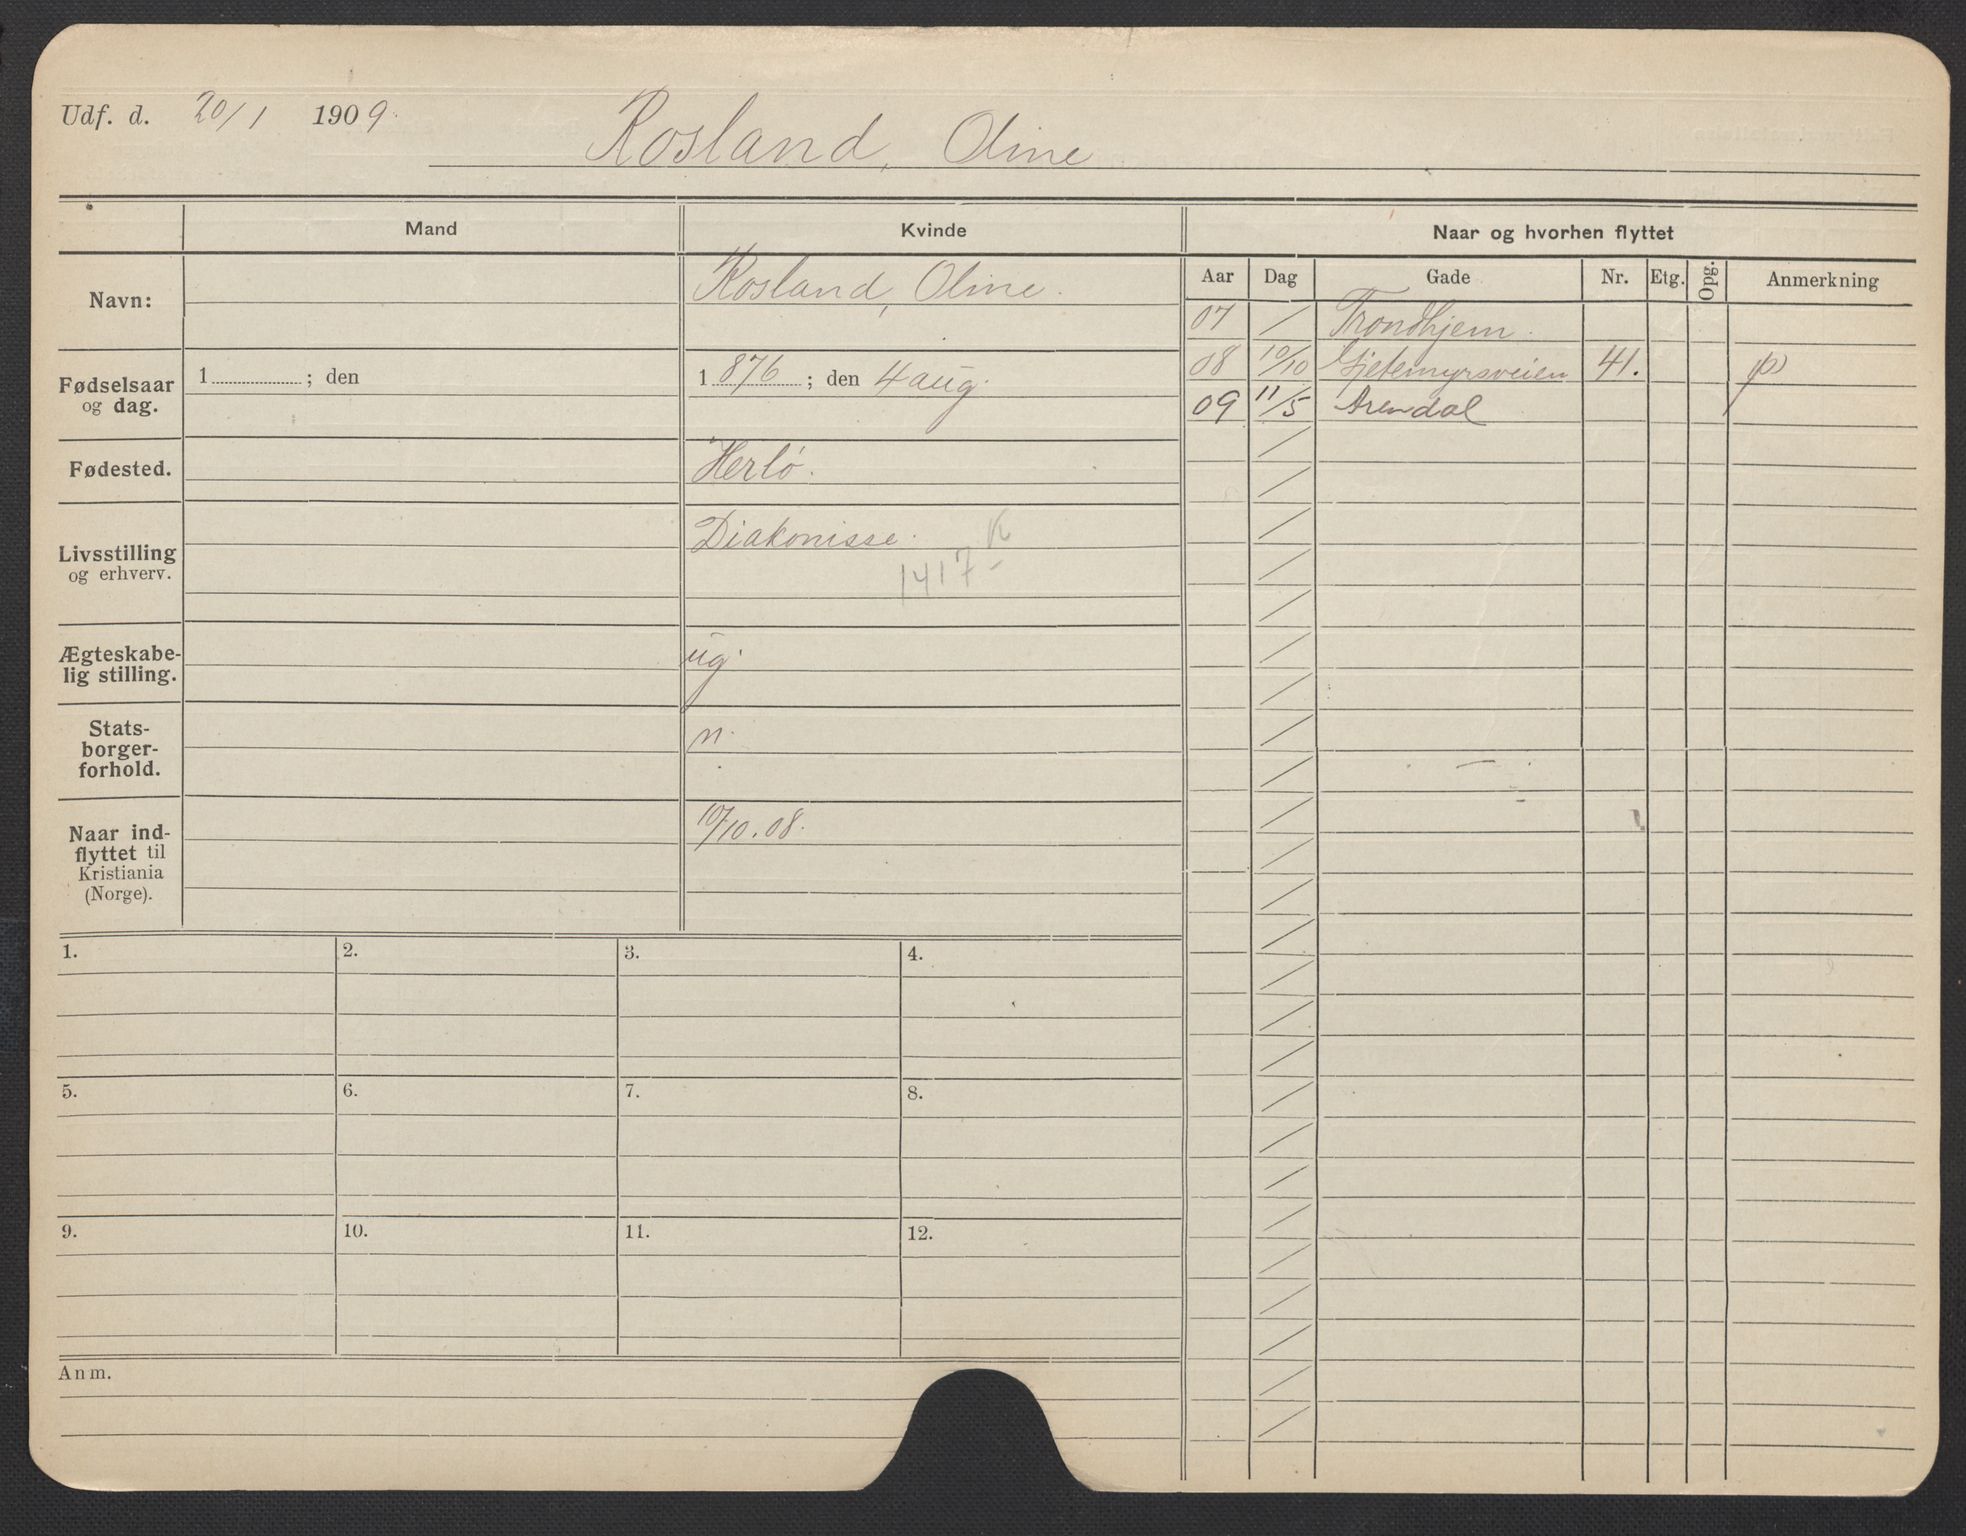 Udf. d. 20/1 1909.
Rosland, Oline
Mand
Kvinde
Naar og hvorhen flyttet
Navn:
Rosland, Oline.
Aar Dag Gade Nr. Etg. Opg. Anmerkning
07 / Trondhjem.
08 10/10 Gjetemyrsveien 41. p
09 11/5 Arendal
Fødselsaar
og dag.
1 ; den
1 876 ; den 4 aug.
Fødested.
Herlö.
Livsstilling
og erhverv.
Diakonisse.
1417 K
Ægteskabe-
lig stilling.
ug.
Stats-
borger-
forhold.
n.
Naar ind-
flyttet til
Kristiania
(Norge).
10/10.08.
1. 2. 3. 4.
5. 6. 7. 8.
9. 10. 11. 12.
Anm.